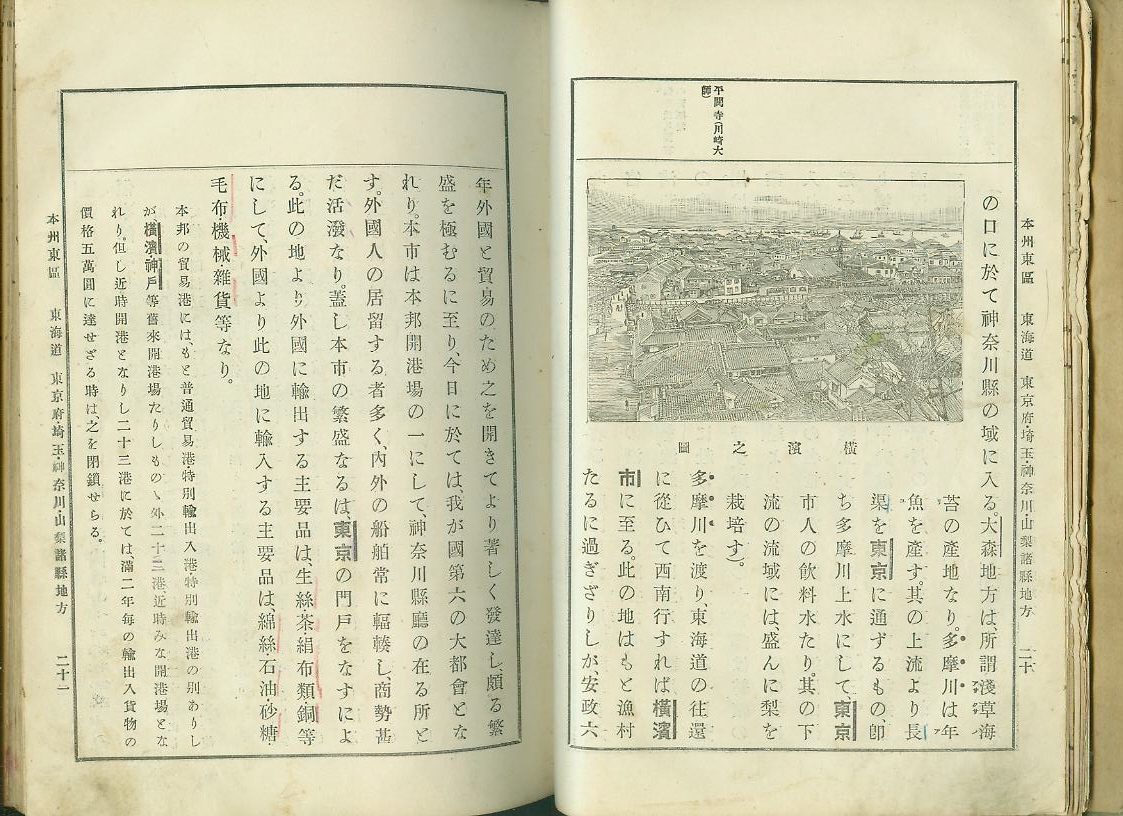 本州東區　東海道　東京府・埼玉・神奈川・山梨諸縣地方　二十
平間寺(川崎大
師)
の口に於て神奈川縣の域に入る。大森地方は、所謂淺草海
苔の產地なり。多摩川は年
魚を產す。其の上流より長
渠を東京に通ずるもの、卽
ち多摩川上水にして、東京
市人の飮料水たり。其の下
流の流域には、盛んに梨を
栽培す)。
多摩川を渡り、東海道の往還
に從ひて西南行すれば橫濱
市に至る。此の地はもと漁村
たるに過ぎざりしが、安政六
橫濱之圖
年外國と貿易のため之を開きてより著しく發達し、頗る繁
盛を極むるに至り、今日に於ては我が國第六の大都會とな
れり。本市は本邦開港場の一にして、神奈川縣廳の在る所と
す。外國人の居留する者多く、內外の船舶常に輻輳し、商勢甚
だ活潑なり。蓋し本市の繁盛なるは、東京の門戶をなすによ
る。此の地より外國に輸出する主要品は、生絲・茶・絹布類・銅等
にして、外國より此の地に輸入する主要品は、綿絲・石油・砂糖・
毛布・機械・雜貨等なり。
本邦の貿易港には、もと普通貿易港・特別輸出入港・特別輸出港の別ありし
が、橫濱・神戶等舊來開港場たりしものゝ外二十三港、近時みな開港場とな
れり。但し近時開港となりし二十三港に於ては、滿二年每の輸出入貨物の
價格五萬圓に達せざる時は、之を閉鎖せらる。
本州東區　東海道　東京府・埼玉・神奈川・山梨諸縣地方　二十一